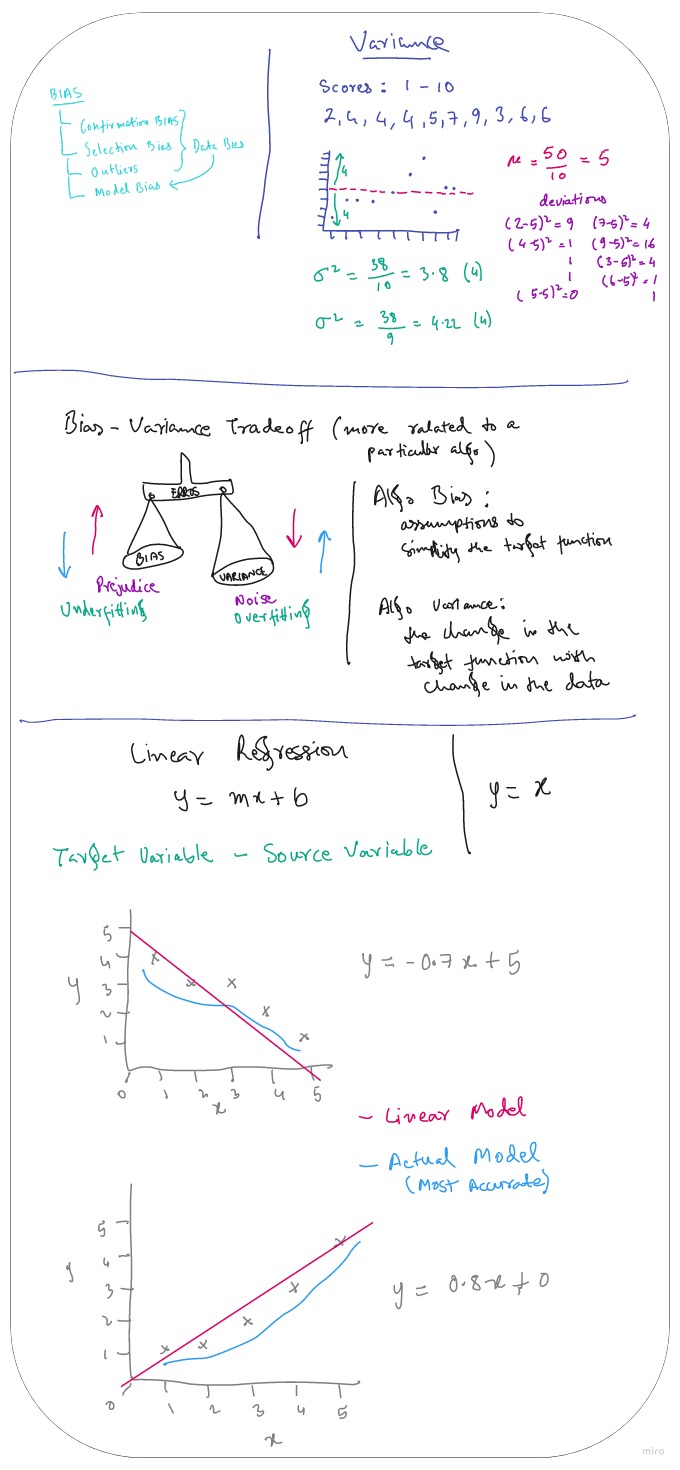 BIAS
Confirmation BIAS
Selection Bias
Data Bias
Outliers
Model Bias
Variance
Scores: 1 - 10
2, 4, 4, 4, 5, 7, 9, 3, 6, 6
4
4
μ = 50/10 = 5
deviations
(2-5)² = 9 (7-5)² = 4
(4-5)² = 1 (9-5)² = 16
1 (3-5)² = 4
1 (6-5)² = 1
(5-5)² = 0 1
σ² = 38/10 = 3.8 (4)
σ² = 38/9 = 4.22 (4)
Bias - Variance Tradeoff (more related to a
particular algo)
BIAS
VARIANCE
Prejudice
Underfitting
Noise
Overfitting
Algo Bias:
assumptions to
simplify the target function
Algo Variance:
the change in the
target function with
change in the data
Linear Regression
y = mx + b
y = x
Target Variable - Source Variable
5
4
3
2
1
y
0 1 2 3 4 5
x
y = -0.7x + 5
- Linear Model
- Actual Model
(Most Accurate)
5
4
3
2
1
0 1 2 3 4 5
x
y = 0.8x + 0
miro